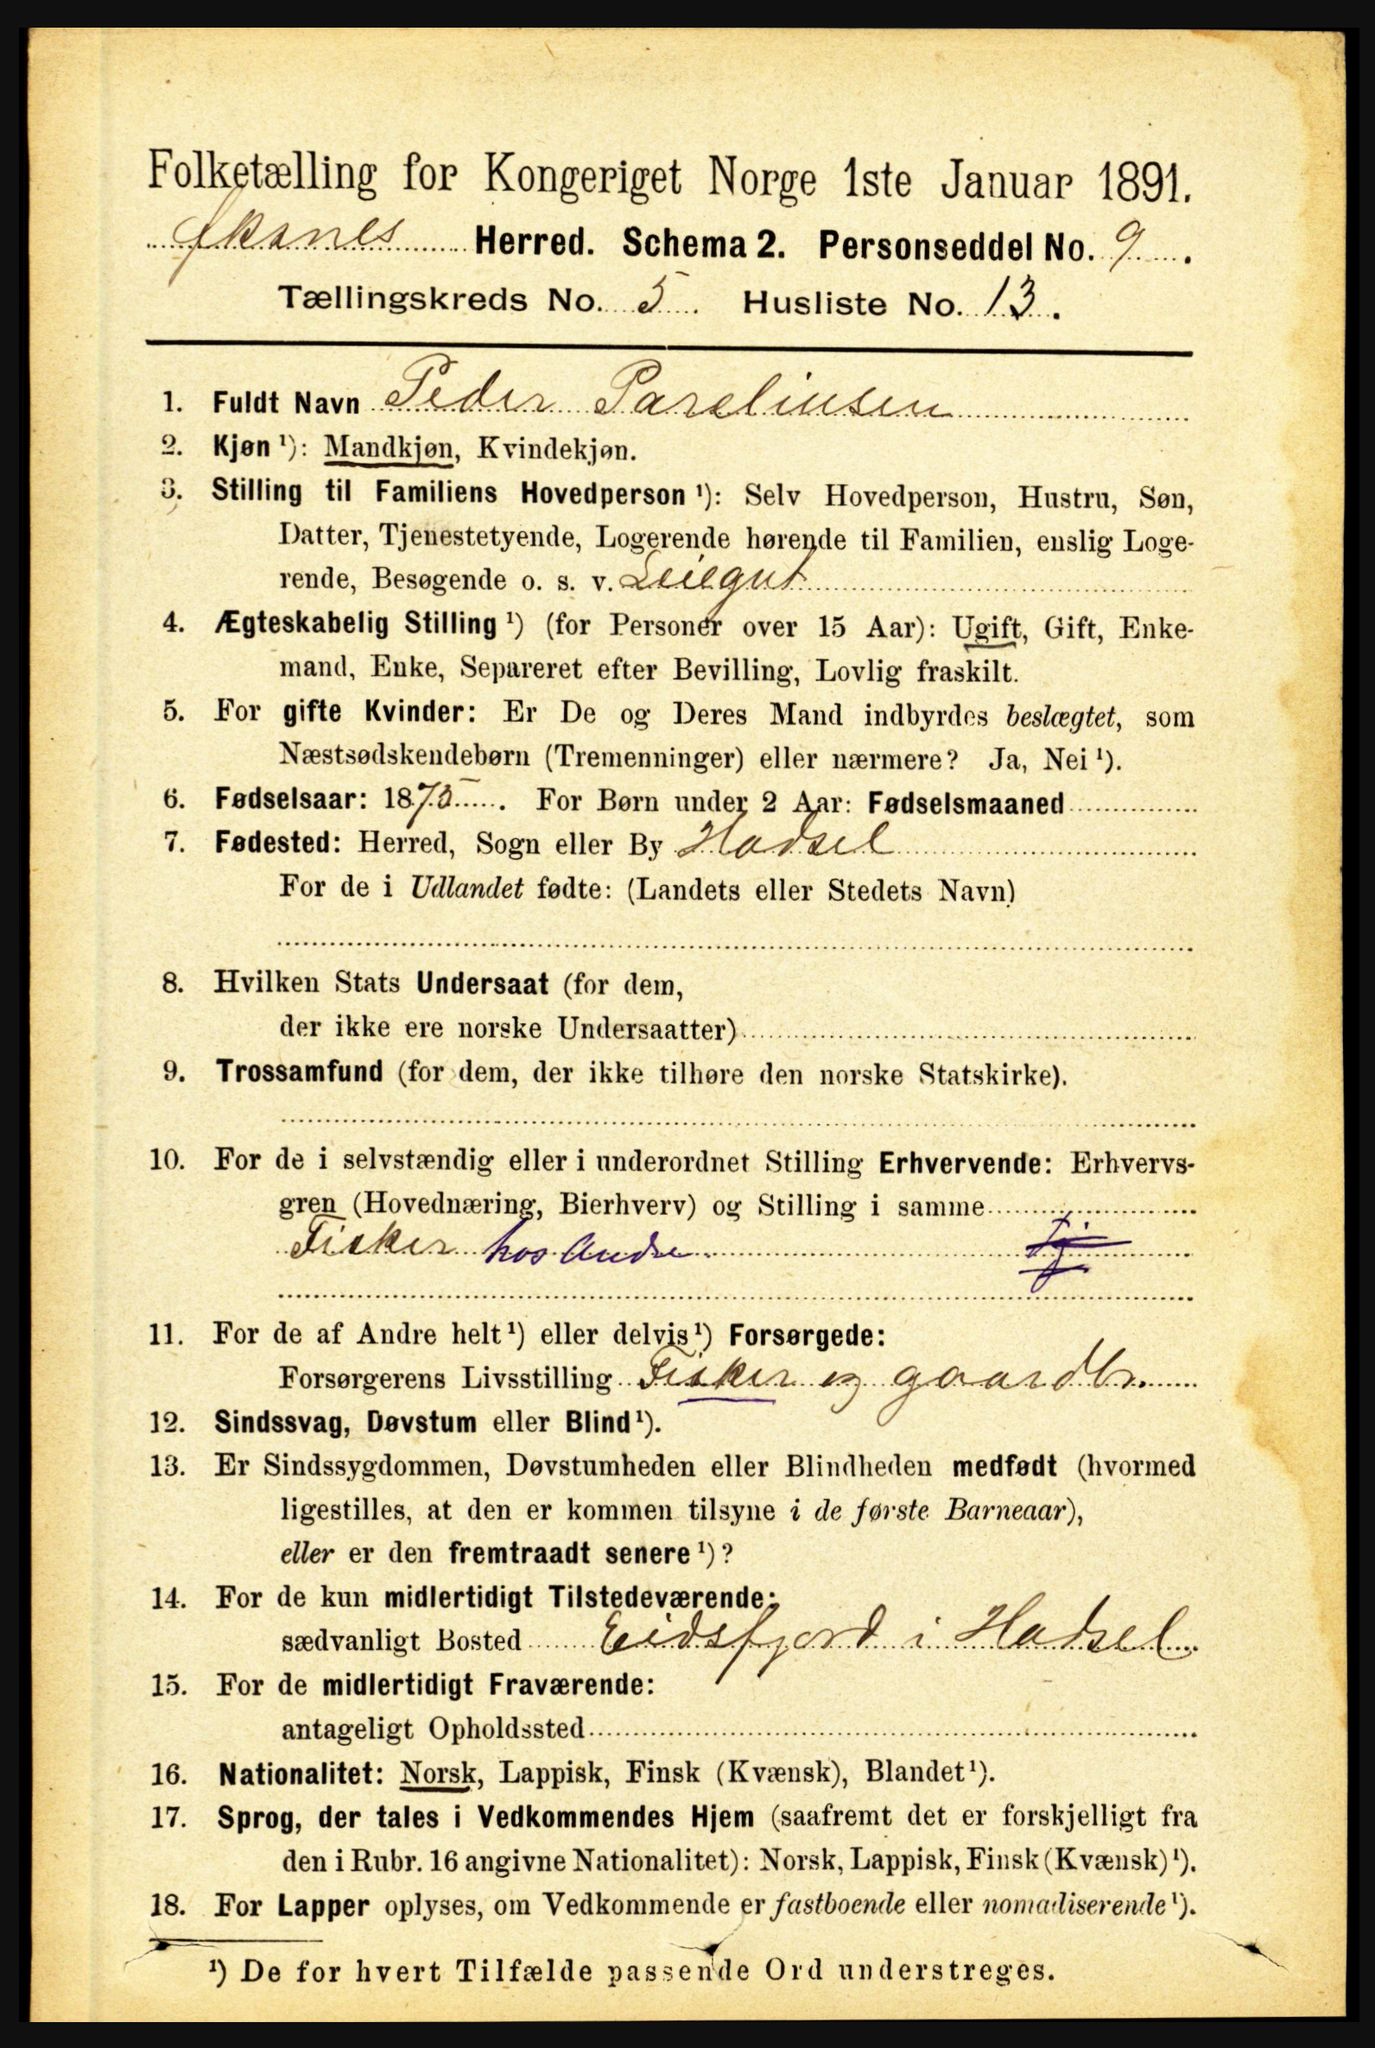 Folketælling for Kongeriget Norge 1ste Januar 1891.
Øksnes Herred. Schema 2. Personseddel No. 9.
Tællingskreds No. 5. Husliste No. 13.
1. Fuldt Navn Peder Pareliusen
2. Kjøn ¹): Mandkjøn, Kvindekjøn.
3. Stilling til Familiens Hovedperson ¹): Selv Hovedperson, Hustru, Søn,
Datter, Tjenestetyende, Logerende hørende til Familien, enslig Loge-
rende, Besøgende o. s. v. Leiegut
4. Ægteskabelig Stilling ¹) (for Personer over 15 Aar): Ugift, Gift, Enke-
mand, Enke, Separeret efter Bevilling, Lovlig fraskilt.
5. For gifte Kvinder: Er De og Deres Mand indbyrdes beslægtet, som
Næstsødskendebørn (Tremenninger) eller nærmere? Ja, Nei ¹).
6. Fødselsaar: 1875. For Børn under 2 Aar: Fødselsmaaned
7. Fødested: Herred, Sogn eller By Hadsel
For de i Udlandet fødte: (Landets eller Stedets Navn)
8. Hvilken Stats Undersaat (for dem,
der ikke ere norske Undersaatter)
9. Trossamfund (for dem, der ikke tilhøre den norske Statskirke).
10. For de i selvstændig eller i underordnet Stilling Erhvervende: Erhvervs-
gren (Hovednæring, Bierhverv) og Stilling i samme
Fisker hos Andre Tj
11. For de af Andre helt ¹) eller delvis ¹) Forsørgede:
Forsørgerens Livsstilling Fisker og gaardbr.
12. Sindssvag, Døvstum eller Blind ¹).
13. Er Sindssygdommen, Døvstumheden eller Blindheden medfødt (hvormed
ligestilles, at den er kommen tilsyne i de første Barneaar),
eller er den fremtraadt senere ¹)?
14. For de kun midlertidigt Tilstedeværende:
sædvanligt Bosted Eidsfjord i Hadsel
15. For de midlertidigt Fraværende:
antageligt Opholdssted
16. Nationalitet: Norsk, Lappisk, Finsk (Kvænsk), Blandet ¹).
17. Sprog, der tales i Vedkommendes Hjem (saafremt det er forskjelligt fra
den i Rubr. 16 angivne Nationalitet): Norsk, Lappisk, Finsk (Kvænsk) ¹).
18. For Lapper oplyses, om Vedkommende er fastboende eller nomadiserende ¹).
¹) De for hvert Tilfælde passende Ord understreges.